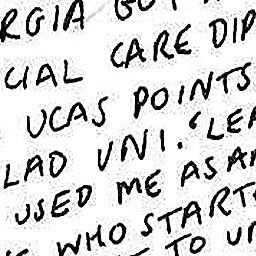 RGIA GOT
CIAL CARE DIP
UCAS POINTS
LAD UNI. 'LEA
USED ME AS A
WHO START
TO UN